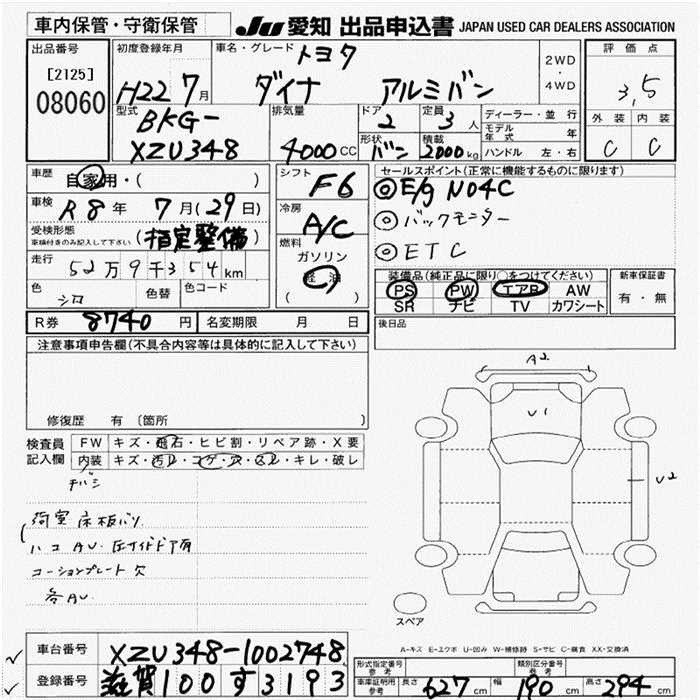 車内保管・守衛保管
JU 愛知 出品申込書 JAPAN USED CAR DEALERS ASSOCIATION
出品番号
[2125]
08060
初度登録年月
H22 7月
車名・グレード トヨタ
ダイナ アルミバン
2WD
・
4WD
評価点
3.5
外装 内装
C C
型式
BKG-
XZU348
排気量
4000CC
ドア
2
定員
3人
形状
バン
積載
2000kg
ディーラー・並行
モデル年式 年
ハンドル 左・右
車歴
自家用・( )
車検 R8年 7月(29日)
受検形態
車検付きのみ記入して下さい (指定整備)
走行
52万9千354km
色 シロ
色替
色コード
シフト F6
冷房 A/C
燃料
ガソリン
軽油
( )
セールスポイント(正常に機能するものに限ります)
◎E/g N04C
◎バックモニター
◎ETC
装備品(純正品に限り○をつけてください)
PS PW エアB AW
SR ナビ TV カワシート
新車保証書
有・無
R券 8740円
名変期限 月 日
後日品
注意事項申告欄(不具合内容等は具体的に記入して下さい)
修復歴 有 〔箇所 〕
検査員
記入欄
FW キズ・飛石・ヒビ割・リペア跡・X要
内装 キズ・汚れ・コゲ・穴・スレ・キレ・破レ
荷室 床板バリ
コーションプレート欠
各AU
A2
U1
U2
スペア
A-キズ E-エクボ U-凹み W-補修跡 S-サビ C-腐食 XX-交換済
車台番号 XZU348-1002748
登録番号 滋賀100す3193
形式指定番号
参考
類別区分番号
参考
車庫証明用
参考
長さ 627cm 幅 190cm 高さ 294cm